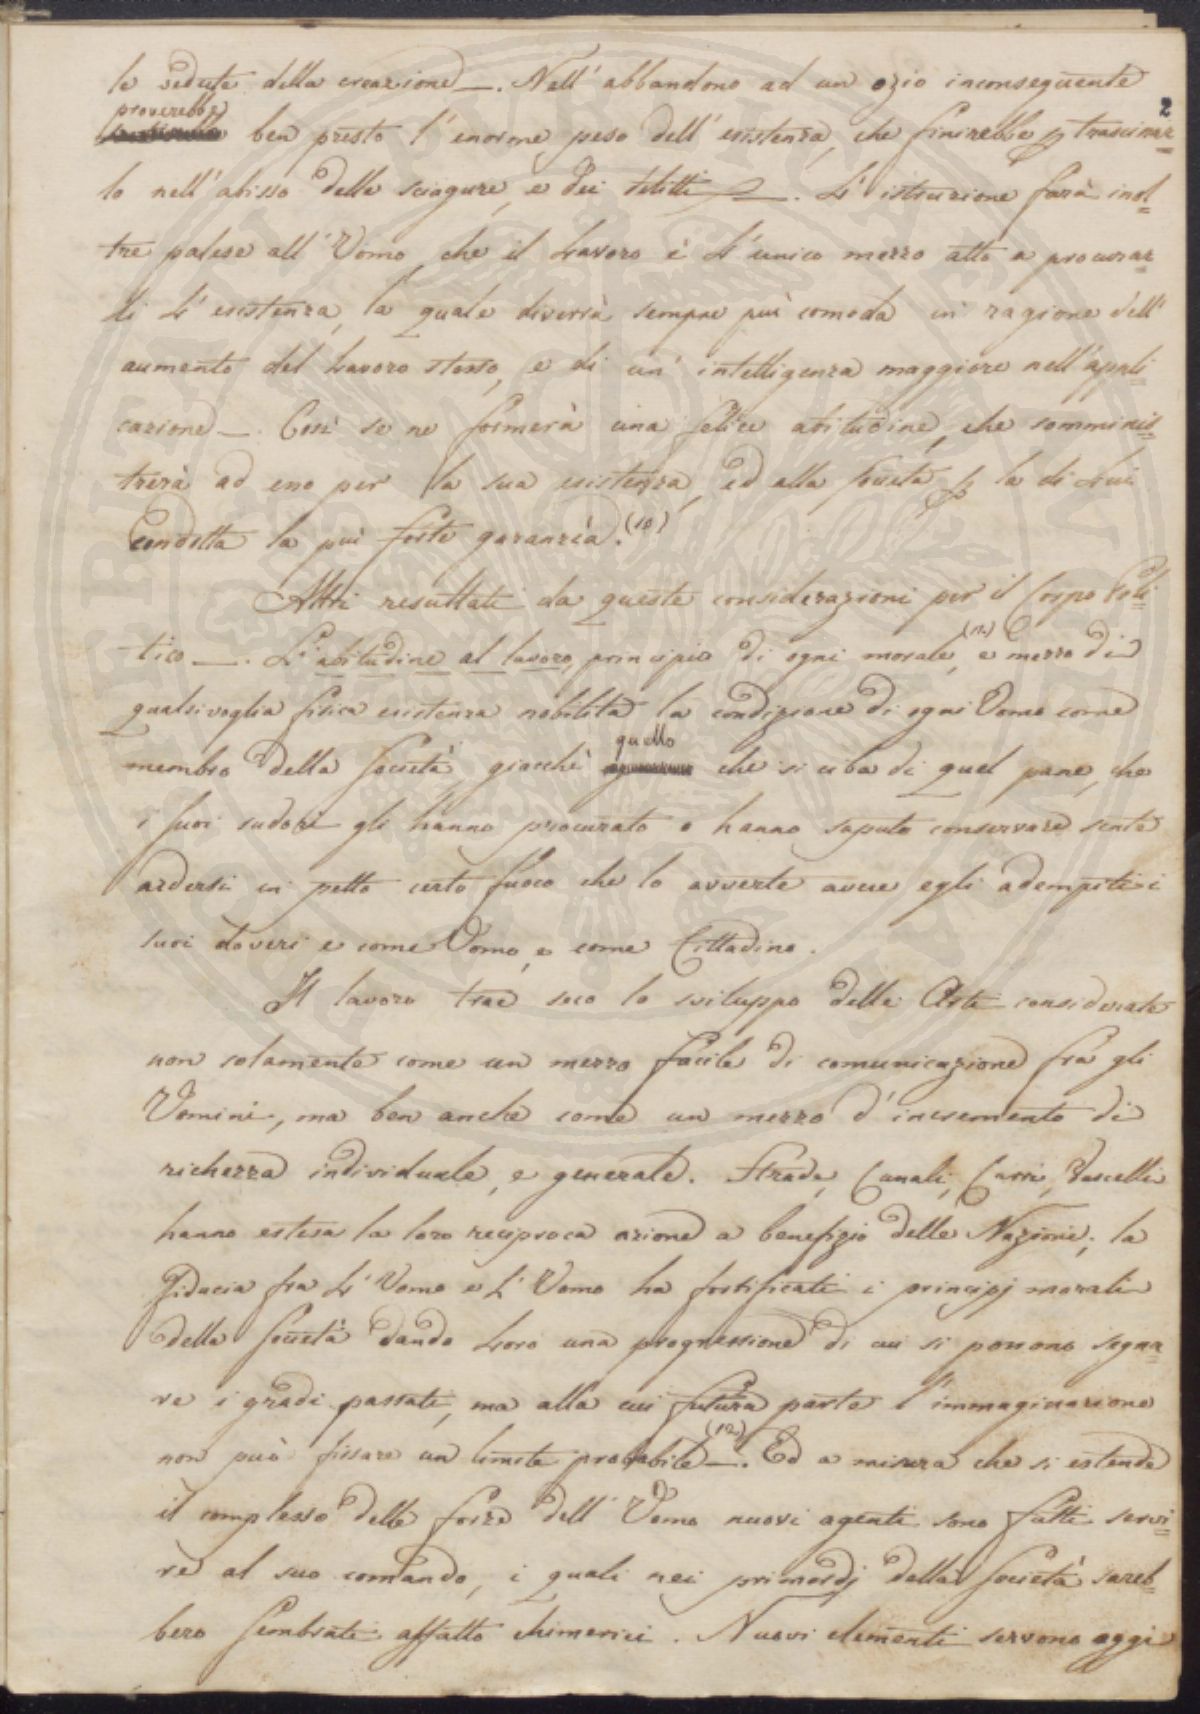 le vedute della creazione —. Nell' abbandono ad un ozio inconseguente
2
proverebbe
ben presto l' enorme peso dell' esistenza, che finirebbe p trascinar=
lo nell' abisso delle sciagure, e dei delitti —. L' istruzione farà inol=
tre palese all' Uomo, che il Lavoro è L' unico mezzo atto a procurar=
li L' esistenza, la quale diverrà sempre più comoda in ragione dell'
aumento del Lavoro stesso, e di un' intelligenza maggiore nell' appli=
cazione —. Così se ne formerà una felice abitudine, che somminis=
trerà ad esso per la sua esistenza, ed alla Società p la di Lui
Condotta la più forte garanzia. (10)
Altri resultati da queste considerazioni per il Corpo Poli=
tico —. L' abitudine al lavoro, principio di ogni morale, (11) e mezzo di
qualsivoglia fisica esistenza nobilita la condizione di ogni Uomo come
quello
membro della Società, giacchè che si ciba di quel pane, che
i suoi sudori gli hanno procurato o hanno saputo conservare sente
ardersi in petto certo fuoco che lo avverte avere egli adempiti i
suoi doveri e come Uomo, e come Cittadino.
Il lavoro trae seco lo sviluppo delle Arti considerate
non solamente come un mezzo facile di comunicazione fra gli
Uomini, ma ben anche come un mezzo d' incremento di
richezza individuale, e generale. Strade, Canali, Carri, Vascelli
hanno estesa la loro reciproca azione a benefizio delle Nazioni; la
fiducia fra L' Uomo e L' Uomo ha fortificati i principj morali
della Società dando Loro una progressione di cui si possono segna=
re i gradi passati, ma alla cui futura parte l' immaginazione
non può fissare un limite probabile (12) —. Ed a misura che si estende
il complesso delle forze dell' Uomo nuovi agenti sono fatti servi=
re al suo comando, i quali nei primordj della Società sareb=
bero sembrati affatto chimerici. Nuovi elementi servono oggi